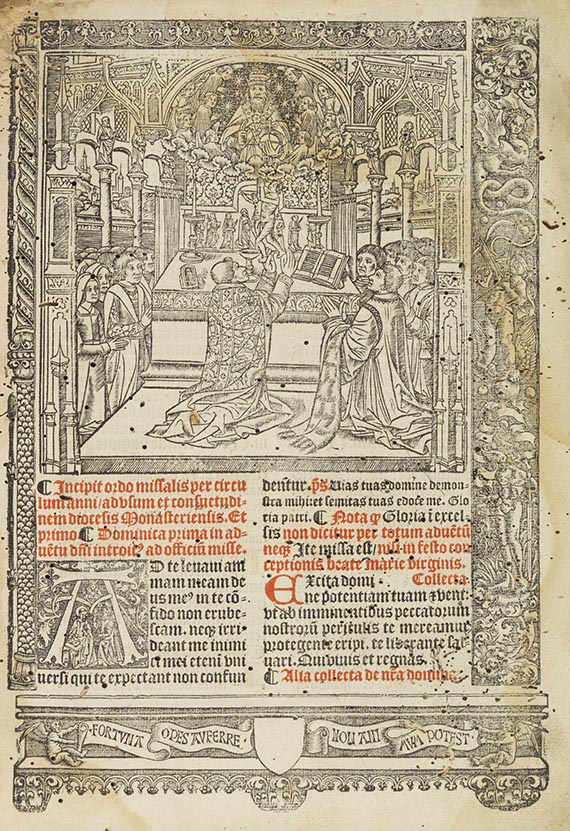 ¶ Incipit ordo missalis per circu
lum anni / ad vsum et consuetudi
nem diocesis Monasteriensis. Et
primo ¶ Dominica prima in ad-
uētu dn̄i introit⁹ ad officiū misse.
AD te leuaui ani
mam meam de
us me⁹ in te cō-
fido non erube-
scam. neqʒ irri
deant me inimi
ci mei eteni vni
uersi qui te expectant non confun
dentur. p̄s Uias tuas domine demon-
stra mihi et semitas tuas edoce me. Glo
ria patri. ¶ Nota ꝙ Gloria ī excel-
sis non dicitur per totum aduētū
neqʒ Ite missa est / nisi in festo con
ceptionis beate Marie virginis.
EXcita domi- Collecta
ne potentiam tuam ⁊ veni.
vt ab imminētibus peccatorum
nostrorū periculis te mereamur
protegente eripi. te liberante sal
uari. Qui viuis et regnas.
¶ Alia collecta de nr̄a domina.
FORTUNA OPES AVFERRE NON ANI MVM POTEST